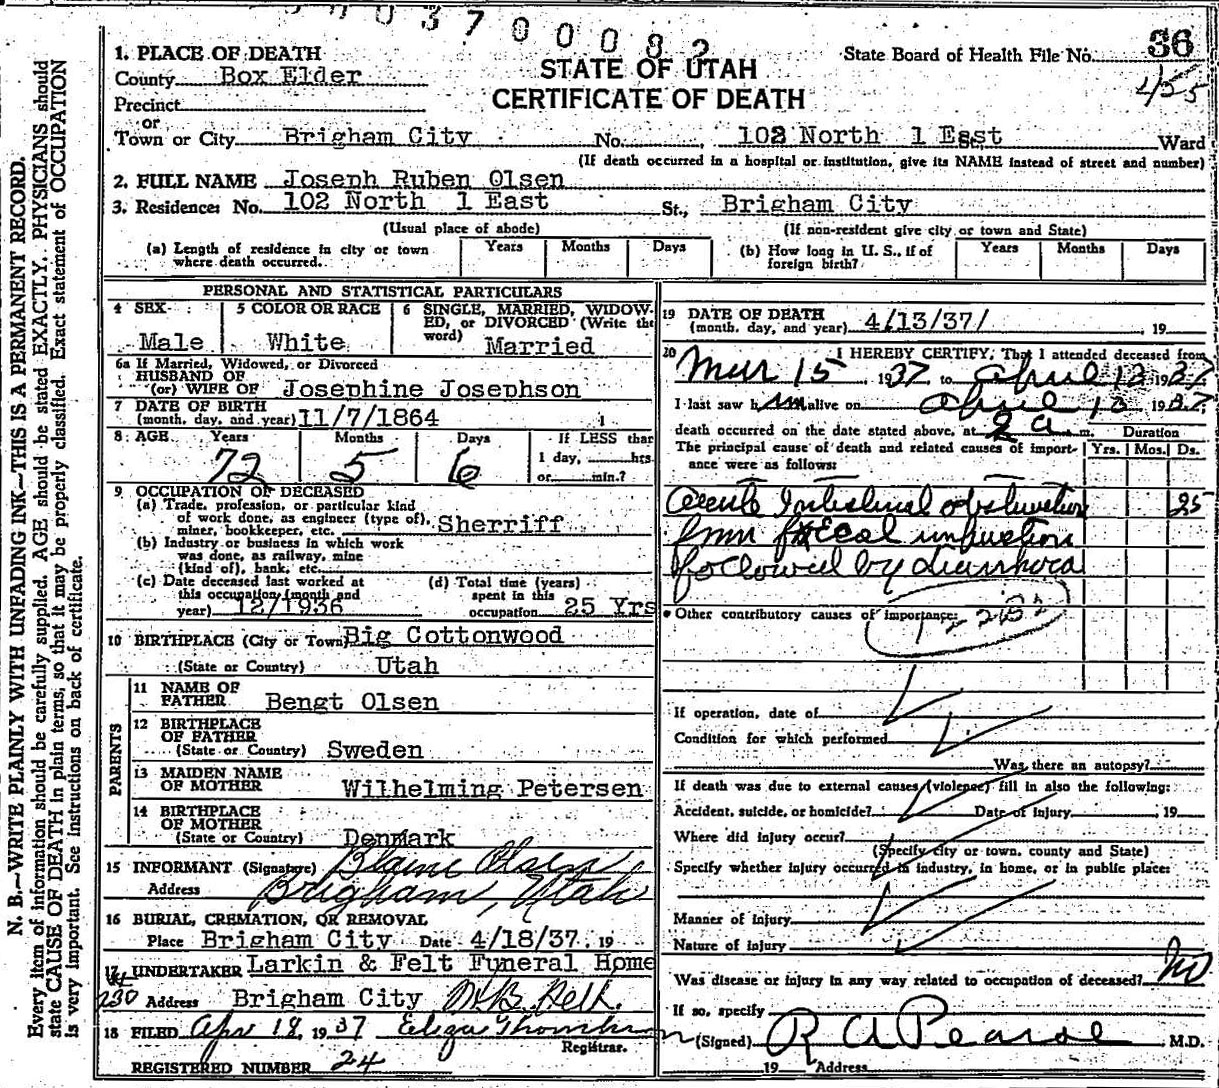 0 3 7 0 0 0 8 2
1. PLACE OF DEATH
County Box Elder
STATE OF UTAH
CERTIFICATE OF DEATH
State Board of Health File No. 36
Precinct
or
Town or City Brigham City No. 102 North 1 East Ward
(If death occurred in a hospital or institution, give its NAME instead of street and number)
2. FULL NAME Joseph Ruben Olsen
3. Residence: No. 102 North 1 East St., Brigham City
(Usual place of abode) (If non-resident give city or town and State)
(a) Length of residence in city or town where death occurred. Years Months Days
(b) How long in U. S., if of foreign birth? Years Months Days
PERSONAL AND STATISTICAL PARTICULARS
4 SEX Male
5 COLOR OR RACE White
6 SINGLE, MARRIED, WIDOW-
ED, or DIVORCED (Write the
word) Married
6a If Married, Widowed, or Divorced
HUSBAND OF
(or) WIFE OF Josephine Josephson
7 DATE OF BIRTH
(month, day, and year) 11/7/1864
8 AGE Years Months Days If LESS than
72 5 6 1 day, hrs
or min.?
9 OCCUPATION OF DECEASED
(a) Trade, profession, or particular kind
of work done, as engineer (type of),
miner, bookkeeper, etc. Sherriff
(b) Industry or business in which work
was done, as railway, mine
(kind of), bank, etc.
(c) Date deceased last worked at
this occupation (month and
year) 12/1936
(d) Total time (years)
spent in this
occupation 25 Yrs
10 BIRTHPLACE (City or Town) Big Cottonwood
(State or Country) Utah
PARENTS
11 NAME OF
FATHER Bengt Olsen
12 BIRTHPLACE
OF FATHER
(State or Country) Sweden
13 MAIDEN NAME
OF MOTHER Wilhelming Petersen
14 BIRTHPLACE
OF MOTHER
(State or Country) Denmark
15 INFORMANT (Signature) Blaine Olsen
Address Brigham, Utah
16 BURIAL, CREMATION, OR REMOVAL
Place Brigham City Date 4/18/37 19
17 UNDERTAKER Larkin & Felt Funeral Home
230 Address Brigham City
18 FILED Apr 18, 1937 Eliza
Registrar.
REGISTERED NUMBER 24
19 DATE OF DEATH
(month, day, and year) 4/13/37/ , 19
20 I HEREBY CERTIFY, That I attended deceased from
Mar 15 1937 to april 1937
I last saw h im alive on april 1937
death occurred on the date stated above, at 2 a m. Duration
The principal cause of death and related causes of import-
ance were as follows: Yrs. Mos. Ds.
Acute Intestinal obstruction 25
from fecal impaction
followed by diarrhoea
Other contributory causes of importance:
If operation, date of
Condition for which performed
Was there an autopsy?
If death was due to external causes (violence) fill in also the following:
Accident, suicide, or homicide? Date of injury , 19
Where did injury occur?
(Specify city or town, county and State)
Specify whether injury occurred in industry, in home, or in public place:
Manner of injury
Nature of injury
Was disease or injury in any way related to occupation of deceased? no
If so, specify
(Signed) R A Pearse M.D.
19 Address
N. B.—WRITE PLAINLY WITH UNFADING INK—THIS IS A PERMANENT RECORD.
Every item of information should be carefully supplied. AGE should be stated EXACTLY. PHYSICIANS should
state CAUSE OF DEATH in plain terms, so that it may be properly classified. Exact statement of OCCUPATION
is very important. See instructions on back of certificate.